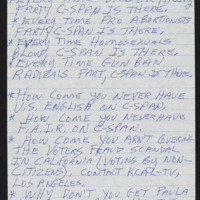 FART, C-SPAN IS THERE.
* EVERY TIME PRO ABORTIONISTS
FART, C-SPAN IS THERE.
* EVERY TIME HOMOSEXUALS
BLOW, C-SPAN IS THERE.
* EVERY TIME GUN BAN
RADICALS FART, C-SPAN IS THERE.
* HOW COME YOU NEVER HAVE
U.S. ENGLISH ON C-SPAN.
* HOW COME YOU NEVER HAVE
F.A.I.R. ON C-SPAN.
* HOW COME YOU ARN'T COVERING
THE VOTERS FRAUD SCANDAL
IN CALIFORNIA (VOTING BY NON-
CITIZENS), CONTACT KCAL-TV,
LOS ANGELES.
* WHY DON'T YOU GET PAULA